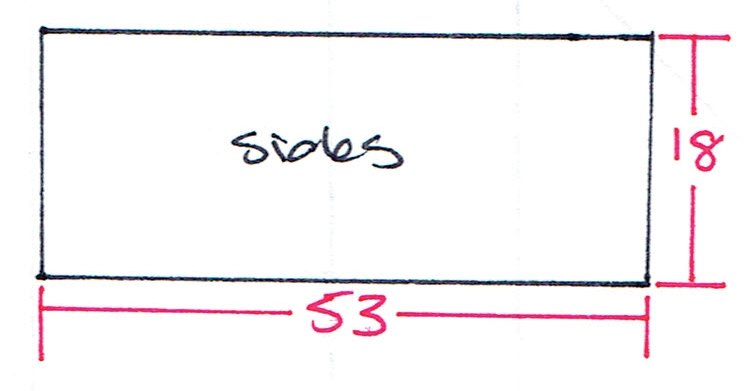 sides
18
53